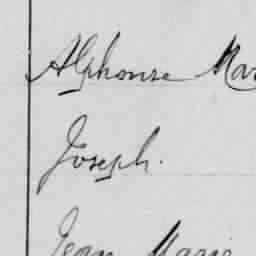 Alphonse Mar
Joseph.
Jean Marie